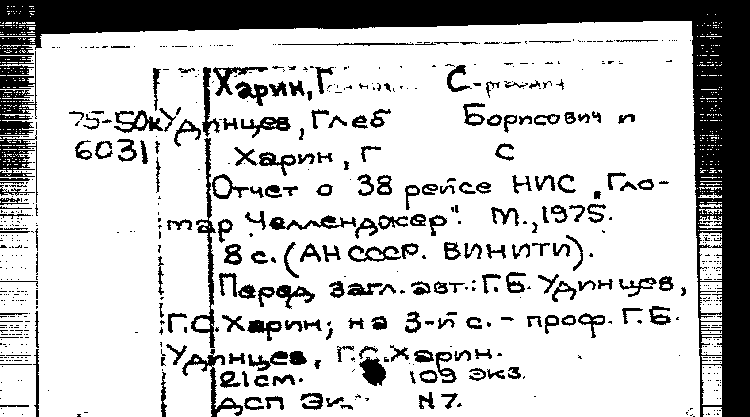 Харин, Г С
75-50к Удинцев, Глеб Борисович и
6031 Харин, Г С
Отчет о 38 рейсе НИС „Гло-
мар Челленджер". М., 1975.
8 с. (АН СССР. ВИНИТИ).
Перед загл. авт.: Г.Б. Удинцев,
Г.С. Харин; на 3-й с. - проф. Г.Б.
Удинцев, Г.С. Харин.
21 см. 109 экз.
ДСП Эк. N 7.